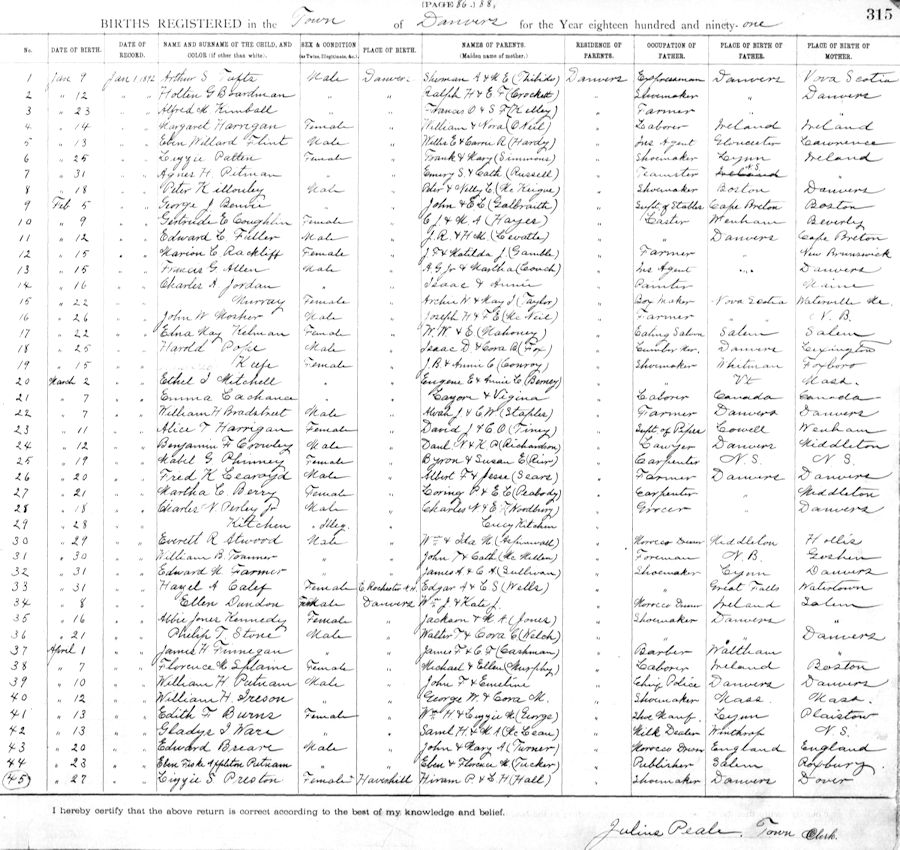 (PAGE 86.) 88,
315
BIRTHS REGISTERED in the Town of Danvers for the Year eighteen hundred and ninety-one
No. DATE OF BIRTH. DATE OF RECORD. NAME AND SURNAME OF THE CHILD, AND COLOR (if other than white). SEX & CONDITION (as Twins, Illegitimate, &c.) PLACE OF BIRTH. NAMES OF PARENTS. (Maiden name of mother.) RESIDENCE OF PARENTS. OCCUPATION OF FATHER. PLACE OF BIRTH OF FATHER. PLACE OF BIRTH OF MOTHER.
1 Jan 9 Jan 1 1892 Arthur S Tufts Male Danvers Sherman A & M E Danvers Expressman Danvers Nova Scotia
2 " 12 " " Holten G Boardman " " Ralph H & E F (Crockett) " Shoemaker " Danvers
3 " 23 " " Alfred M Kimball " " Francis O & S F (Kelley) " Farmer " "
4 " 14 " " Margaret Harrigan Female " William & Nora (O'Neil) " Laborer Ireland Ireland
5 " 13 " " Eben Willard Flint Male " Willis E & Carrie A (Hardy) " Ins Agent Gloucester Lawrence
6 " 25 " " Lizzie Patten Female " Frank & Mary (Simmons) " Shoemaker Lynn Ireland
7 " 31 " " Agnes H. Pitman " " Emery S & Cath (Russell) " Teamster N S "
8 " 18 " " Peter Killouley Male " Peter & Nelly E (McKeigue) " Shoemaker Boston Danvers
9 Feb 5 " " George J Bowie " " John & E L (Galbraith) " Supt of Stables Cape Breton Boston
10 " 9 " " Gertrude E Coughlin Female " C J & M A (Hayes) " Laster Wenham Beverly
11 " 12 " " Edward C Fuller Male " J. R. & H M (Levatte) " " Danvers Cape Breton
12 " 15 " " Marion C Rackliff Female " J F & Matilda J (Gamble) " Farmer " New Brunswick
13 " 15 " " Francis G Allen Male " A G Jr & Martha (Couch) " Ins Agent " Danvers
14 " 16 " " Charles A Jordan " " Isaac & Annie " Painter " Maine
15 " 22 " " Murray Female " Archie W & May J (Taylor) " Box Maker Nova Scotia Waterville Me.
16 " 26 " " John W Mosher Male " Joseph H & F E (McNeil) " Farmer " N. B.
17 " 22 " " Edna May Kelman Female " W W & E (Mahoney) " Eating Saloon Salem Salem
18 " 25 " " Harold Pope Male " Isaac D & Cora B (Fox) " Lumber Mer. Danvers Lexington
19 " 15 " " Keefe Female " J. B & Annie C (Conroy) " Shoemaker Whitman Foxboro
20 March 2 " " Ethel I Mitchell " " Eugene E & Annie L (Berney) " " Vt Mass.
21 " 7 " " Emma Lachance " " & Vigina " Laborer Canada Canada
22 " 7 " " William H Bradstreet Male " Alvah J & E W (Staples) " Farmer Danvers Danvers
23 " 11 " " Alice T Harrigan Female " David J & C O (Finy) " Supt of Pipes Lowell Wenham
24 " 12 " " Benjamin F Crowley Male " Danl N & K P (Richardson) " Lawyer Danvers Middleton
25 " 19 " " Mabel G Phinney Female " Byron & Susan E (Rier) " Carpenter N. S. N. S.
26 " 20 " " Fred K Learoyd Male " Albert F & Jesse (Sears) " Farmer Danvers Danvers
27 " 21 " " Martha C Berry Female " Loring P & E E (Peabody) " Carpenter " Middleton
28 " 18 " " Charles N Perley Jr Male " Charles N & E (Woodbury) " Grocer " Danvers
29 " 28 " " Kitchen Illeg. " Lucy Kitchen "
30 " 29 " " Everett R Atwood Male " Wm & Ida M " Morocco Dresser Middleton Hollis
31 " 30 " " William B Toomer " " John T & Cath (McMillen) " Foreman N. B. Goshen
32 " 31 " " Edward W Farmer " " James A & C A (Sullivan) " Shoemaker Lynn Danvers
33 " 31 " " Hazel A Calef Female E Rochester N.H. Edgar A & C S (Wells) " " Great Falls Watertown
34 " 8 " " Ellen Dundon Female Danvers Wm J & Kate J. " Morocco Dresser Ireland Salem
35 " 16 " " Abbie Jones Kennedy Female " Jackson & M A (Jones) " Shoemaker Danvers "
36 " 21 " " Philip T. Stone Male " Walter T & Cora E (Welch) " " " Danvers
37 April 1 " " James H Finnegan " " James F & C F (Cashman) " Barber Waltham "
38 " 7 " " Florence M Splaine Female " Michael & Ellen (Murphy) " Laborer Ireland Boston
39 " 10 " " William H Putnam Male " John F & Emeline " Chief Police Danvers Danvers
40 " 12 " " William H. Ireson " " George W. & Cora M. " Shoemaker Mass. Mass.
41 " 13 " " Edith F Burns Female " Wm H & Lizzie M (George) " Shoe Manuf. Lynn Plaistow
42 " 13 " " Gladys I Ware " " Saml H. & M A (McLean) " Milk Dealer Winthrop N. S.
43 " 20 " " Edward Breare Male " John & Mary A (Turner) " Morocco Dresser England England
44 " 23 " " Eben Fiske Appleton Putnam " " Eben & Florence M (Tucker) " Publisher Salem Roxbury
45 " 27 " " Lizzie S Preston Female Haverhill Hiram P. & L H (Hall) " Shoemaker Danvers Dover
I hereby certify that the above return is correct according to the best of my knowledge and belief.
Julius Peale. Town Clerk.